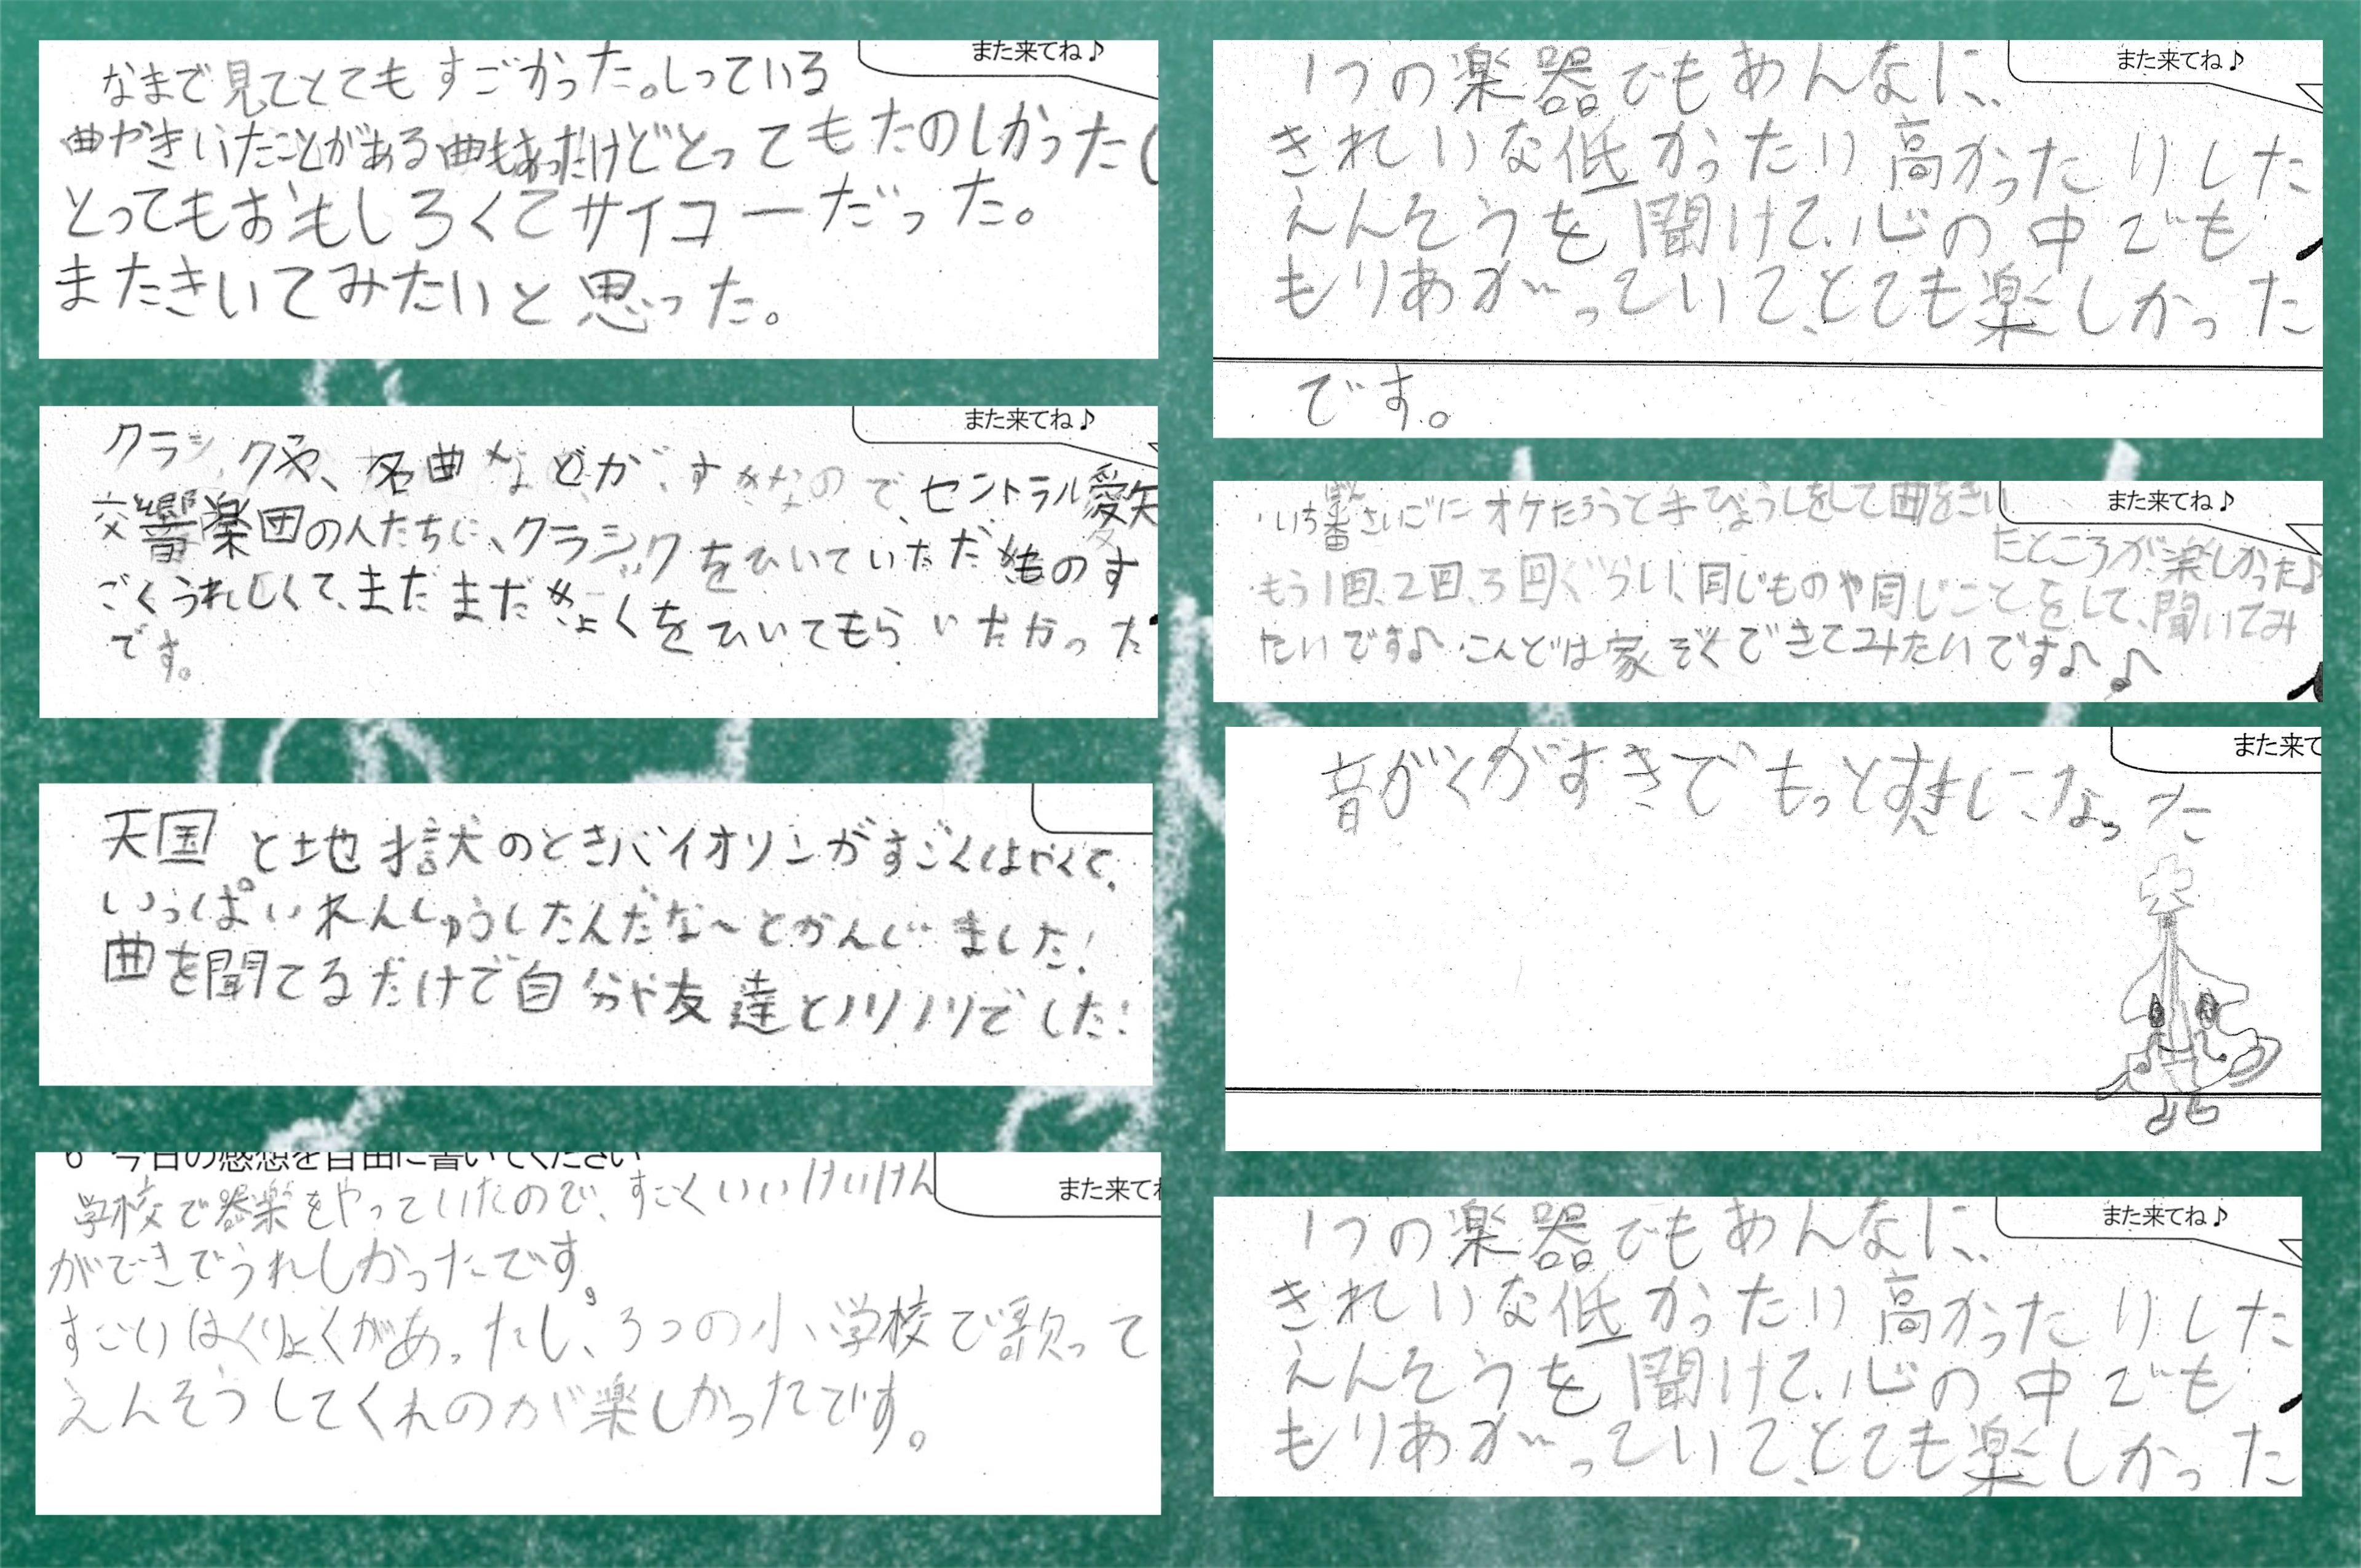 また来てね♪
なまで見てとてもすごかった。しっている
曲やきいたことがある曲もあったけどとってもたのしかった
とってもおもしろくてサイコーだった。
またきいてみたいと思った。
また来てね♪
クラシックや、名曲などが、すきなので、セントラル愛知
交響楽団の人たちに、クラシックをひいていただきものす
ごくうれしくて、まだまだきょくをひいてもらいたかった
です。
天国と地獄のときバイオリンがすごくはやくて、
いっぱいれんしゅうしたんだな〜とかんじました!
曲を聞てるだけで自分や友達とノリノリでした!
6 今日の感想を自由に書いてください
また来てね
学校で器楽をやっていたので、すごくいいけいけん
ができでうれしかったです。
すごいはくりょくがあったし、3つの小学校で歌って
えんそうしてくれのが楽しかったです。
また来てね♪
1つの楽器でもあんなに、
きれいな低かったり高かったりした
えんそうを聞けて、心の中でも
もりあがっていて、とても楽しかった
です。
また来てね♪
・いち番さいごにオケたろうと手びょうしをして曲をきい
たところが楽しかった♪
もう1回、2回、3回ぐらい、同じものや同じことをして、聞いてみ
たいです♪・こんどは家ぞくできてみたいです♪♪
また来て
音がくがすきでもっとすきになった
また来てね♪
1つの楽器でもあんなに、
きれいな低かったり高かったりした
えんそうを聞けて、心の中でも
もりあがっていて、とても楽しかった